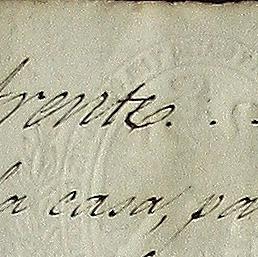 frente. . .
la casa, pa